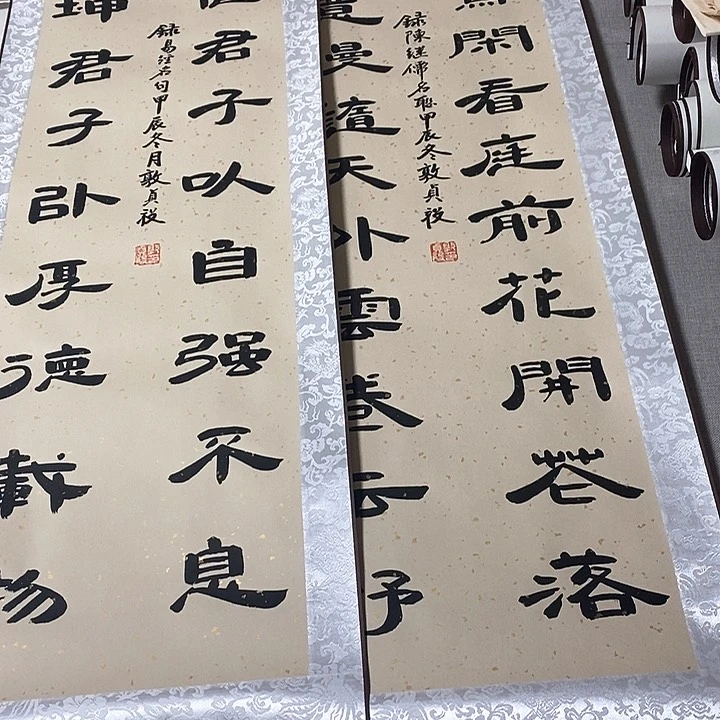 閑看庭前花開花落
録陳继儒名聯甲辰冬敦貞
漫隨天外雲卷云舒
君子以自强不息
録易经名句甲辰冬月敦貞
坤君子以厚德載物